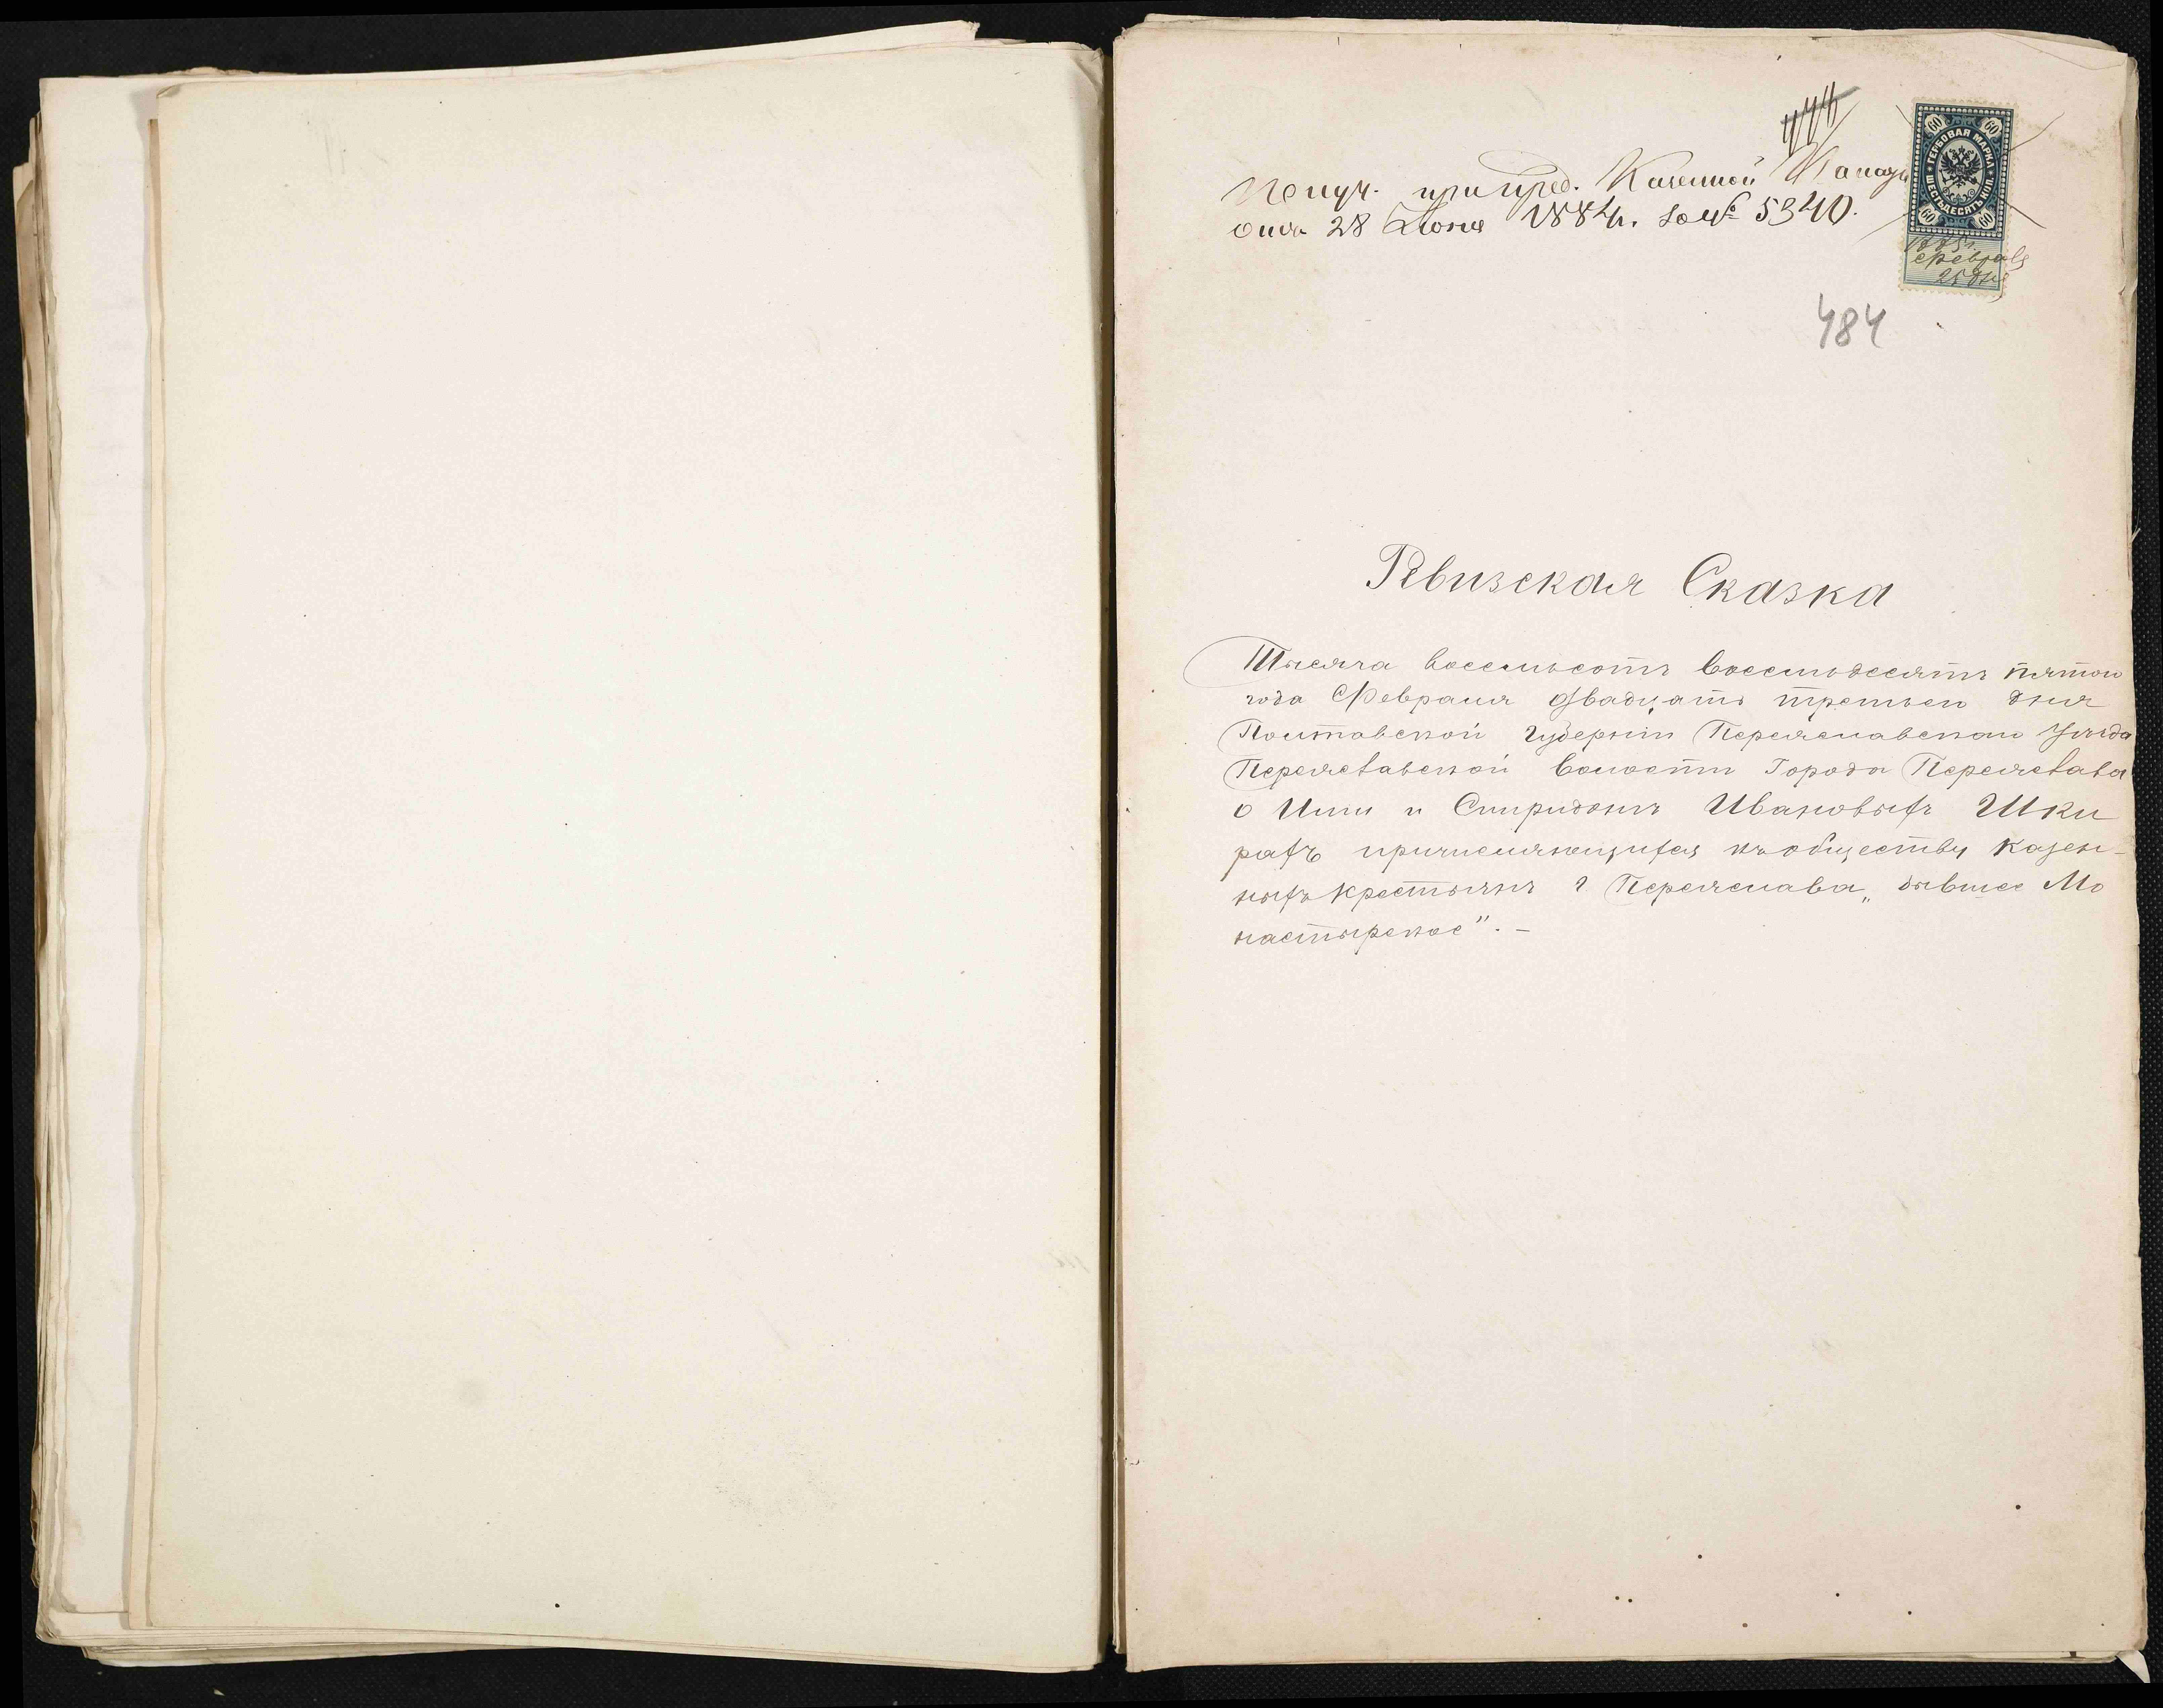 Получ. при пред. Казенной Палаты
отъ 28 Июня 1884 г. за № 5340.
ГЕРБОВАЯ МАРКА
ШЕСТЬДЕСЯТЪ КОП.
60 60
60 60
1885 г.
Февраля
25 дня
484
Ревизская Сказка
Тысяча восемьсотъ восемьдесятъ пятого
года Февраля двадцать третьего дня
Полтавской Губерніи Переяславскаго Уѣзда
Переяславской волости Города Переяслава
о Ильи и Спиридонѣ Ивановыхъ Шки
рахъ причисляющихся къ обществу казен-
ныхъ крестьянъ г Переяслава „бывшее Мо
настырское". -